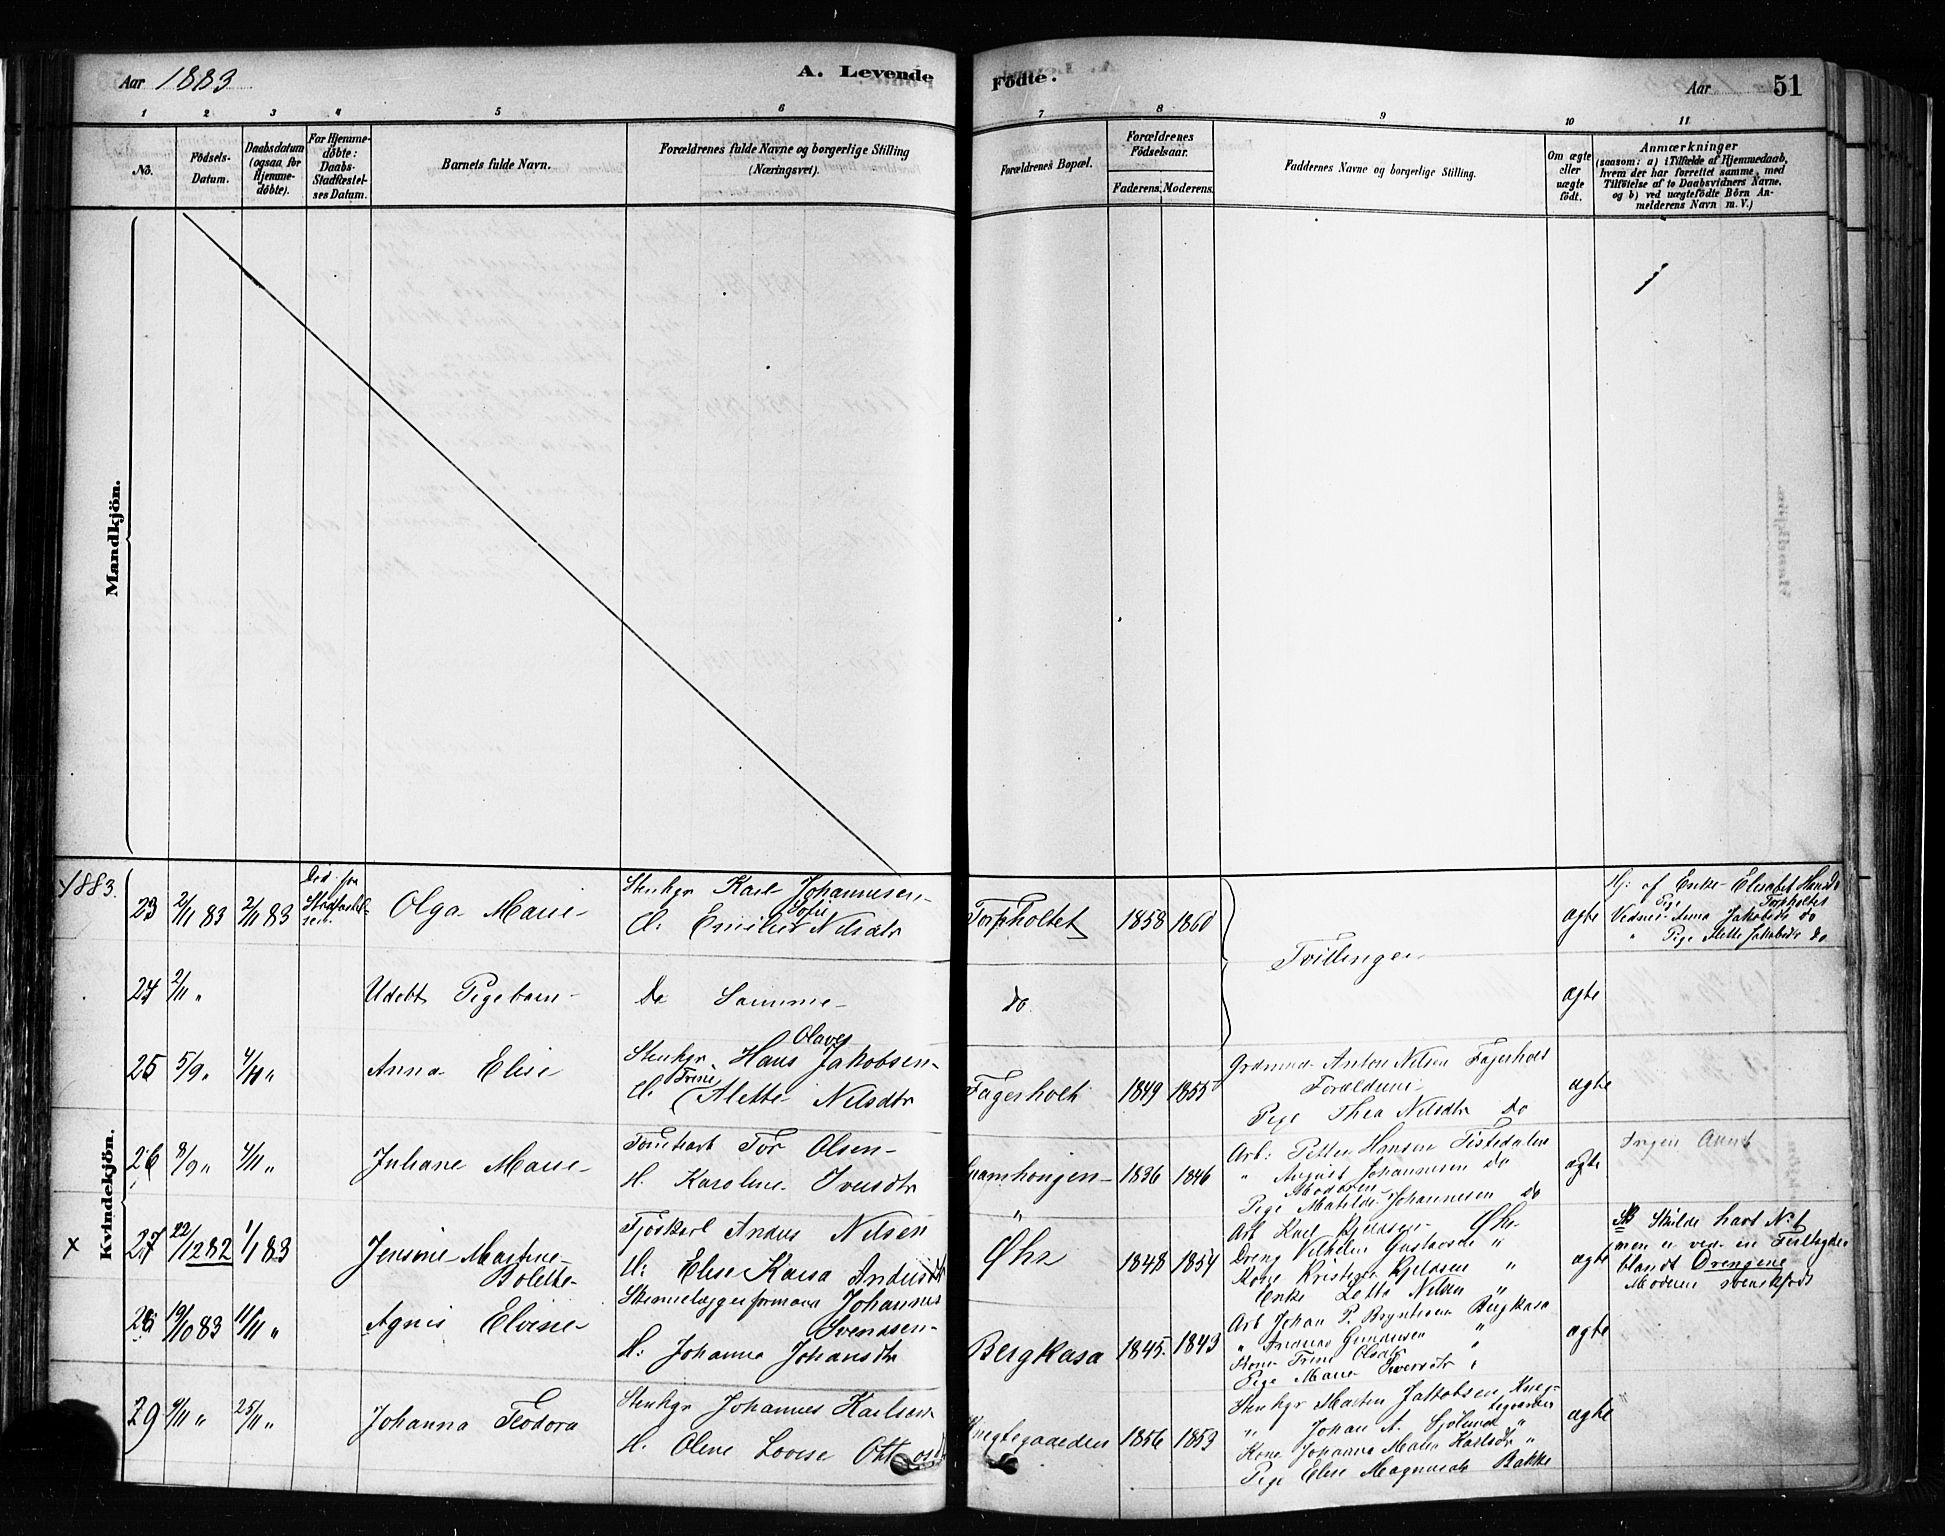 Aar 1883
A. Levende
Födte.
Aar 51
1 2 3 4 5 6 7 8 9 10 11
No.
Födsels-
Datum.
Daabsdatum
(ogsaa for
Hjemme-
døbte).
For Hjemme-
døbte:
Daabs-
Stadfæstel-
ses Datum.
Barnets fulde Navn.
Forældrenes fulde Navne og borgerlige Stilling
(Næringsvei).
Forældrenes Bopæl.
Forældrenes
Födselsaar.
Faderens. Moderens.
Faddernes Navne og borgerlige Stilling.
Om ægte
eller
uægte
födt.
Anmærkninger
(saasom: a) i Tilfælde af Hjemmedaab,
hvem der har forrettet samme, med
Tilföielse af to Daabsvidners Navne,
og b) ved uægtefödte Börn An-
melderens Navn m. V.)
Mandkjön.
Kvindekjön.
1883.
23 2/11 83 2/11 83
Död før
Stadfæstel-
sen.
Olga Marie
Stenhgr Karl Johannesen
H: Emilie Sofie Nilsdtr
Torpholtet 1858 1860
Tvillinger
ægte
Hj: af Enke Elisabet Hansd
Torpholtet
Vidner Pige Anna Jakobsdr do
" Pige Mette Jakobsdr do
24 2/11 "
Udøbt Pigebarn
De Samme
do
ægte
25 5/9 " 4/11 "
Anna Elise
Stenhgr Hans Olaves Jakobsen
H: Trine Alette Nilsdtr
Fagerholt 1849 1855
Grdmand Anton Nilsen Fagerholt
Forældrene
Pige Thea Nilsdtr do
ægte
26 8/9 " 4/11 "
Juliane Marie
Tor Olsen
H. Karoline Iversdtr
1836 1846
Arb: Petter Hansen Tistedalen
" August Johannesen do
Moderen
Pige Matilde Johannesen do
ægte
Ingen
x 27 22/12 82 1/1 83
Jensine Martine
Bolette
Fjöskarl Anders Nilsen
H: Elise Kaisa Andersdtr
Øhr 1848 1854
Arb Karl Kjeldsen Øhr
Dreng Vilhelm Gustavsen "
Kone Kristine Kjeldsen "
Enke Lotte Nilsen "
ægte
NB Skulde havt No 1
men er ved en Feiltagelse
blandt Drengene
Moderen svenskfødt
28 19/10 83 11/11 "
Agnes Elvine
Skinnelæggerformand Johannes
Svendsen
H. Johanne Johansdtr
Bergkasa 1845. 1843
Arb Johan P. Bryntesen Bergkasa
" Andreas Gundersen "
Kone Trine Olsdtr
Pige Marie Iversdtr "
ægte
29 9/11 " 25/11 "
Johanna Teodora
Stenhgr Johannes Karlsen
H. Oline Lovise Ottosd
Knegtegaarden 1856 1853
Stenhgr Martin Jakobsen Kneg-
tegaarden
" Johan A. Sjölund "
Kone Johanne Marie Karlsdtr "
Pige Elise Magnusdtr Bakke
ægte